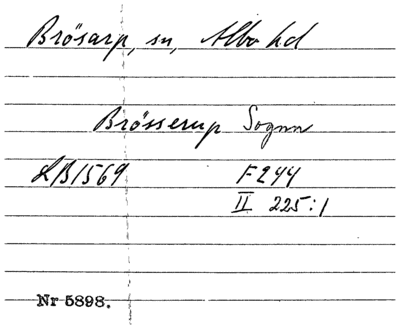 Brösarp, sn, Albo hd
Brösserup Sognn
LB 1569 F 244
II 225:1
Nr 5898.